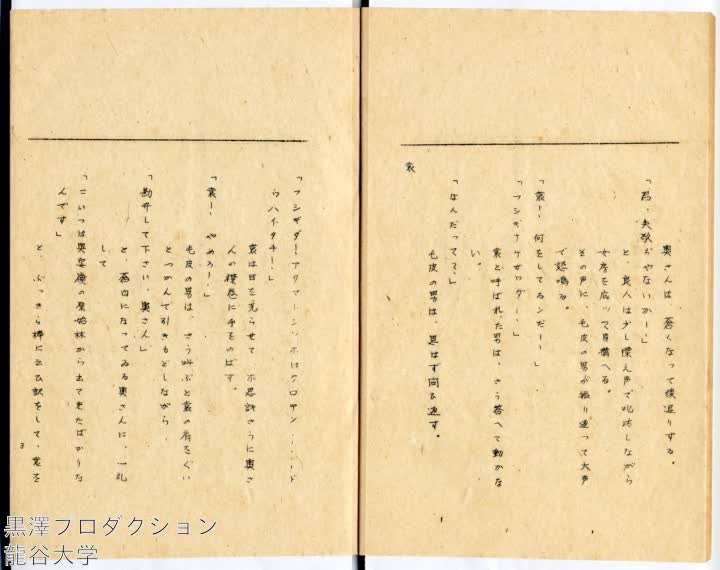 奥さんは、蒼くなって後退りする。
「君、失敬ぢやないか！」
と、良人は少し慄え声で叱咤しながら
女房を庇って身構へる。
その声に、毛皮の男が振り返って大声
で怒鳴る。
「袁！ 何をしてるンだ！」
「フシギナケダモノダ！」
袁と呼ばれた男は、さう答へて動かな
い。
「なんだって？」
毛皮の男は、思はず问ひ返す。
袁
「フシギダ！アタマ！シッポはケロケン・・・・ド
袁は目を光らせて 不思議さうに奥さ
んの襟巻に手をのばす。
「袁！ やめろ！」
毛皮の男は、さう叫ぶと袁の肩をぐい
とつかんで引きもどしながら、
「勘弁して下さい、奥さん」
と、蒼白になってゐる奥さんに、一礼
して
「こいつは興安嶺の原始林から出て来たばかりな
んです」
と、ぶっきら棒に云ひ訳をして、袁を
3
黒澤プロダクション
龍谷大学